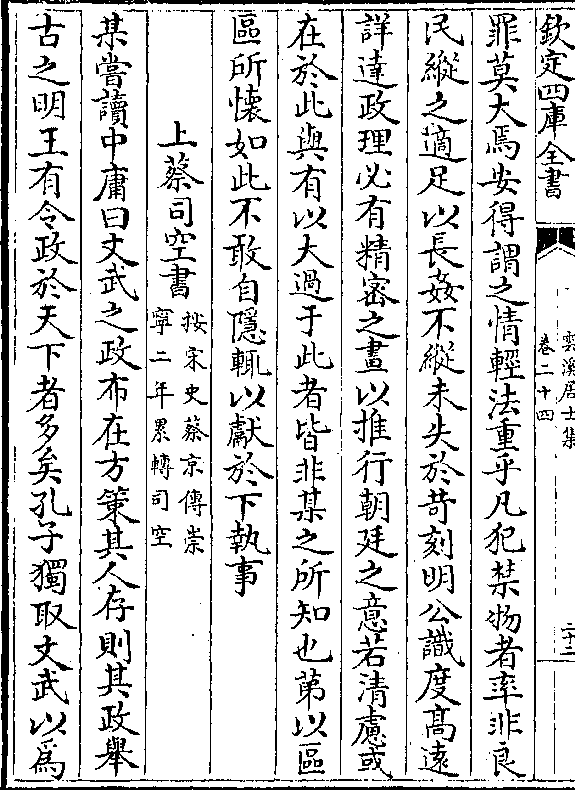 欽定四庫全書
雲溪居士集
卷二十四
二十三
罪莫大焉安得謂之情輕法重乎凡犯禁物者率非良
民縱之適足以長姦不縱未失於苛刻明公識度髙遠
詳達政理必有精密之畫以推行朝廷之意若清慮或
在於此與有以大過于此者皆非某之所知也第以區
區所懷如此不敢自隱輒以獻於下執事
上蔡司空書
按宋史蔡京傳崇
寧二年累轉司空
某嘗讀中庸曰文武之政布在方策其人存則其政舉
古之明王有令政於天下者多矣孔子獨取文武以爲